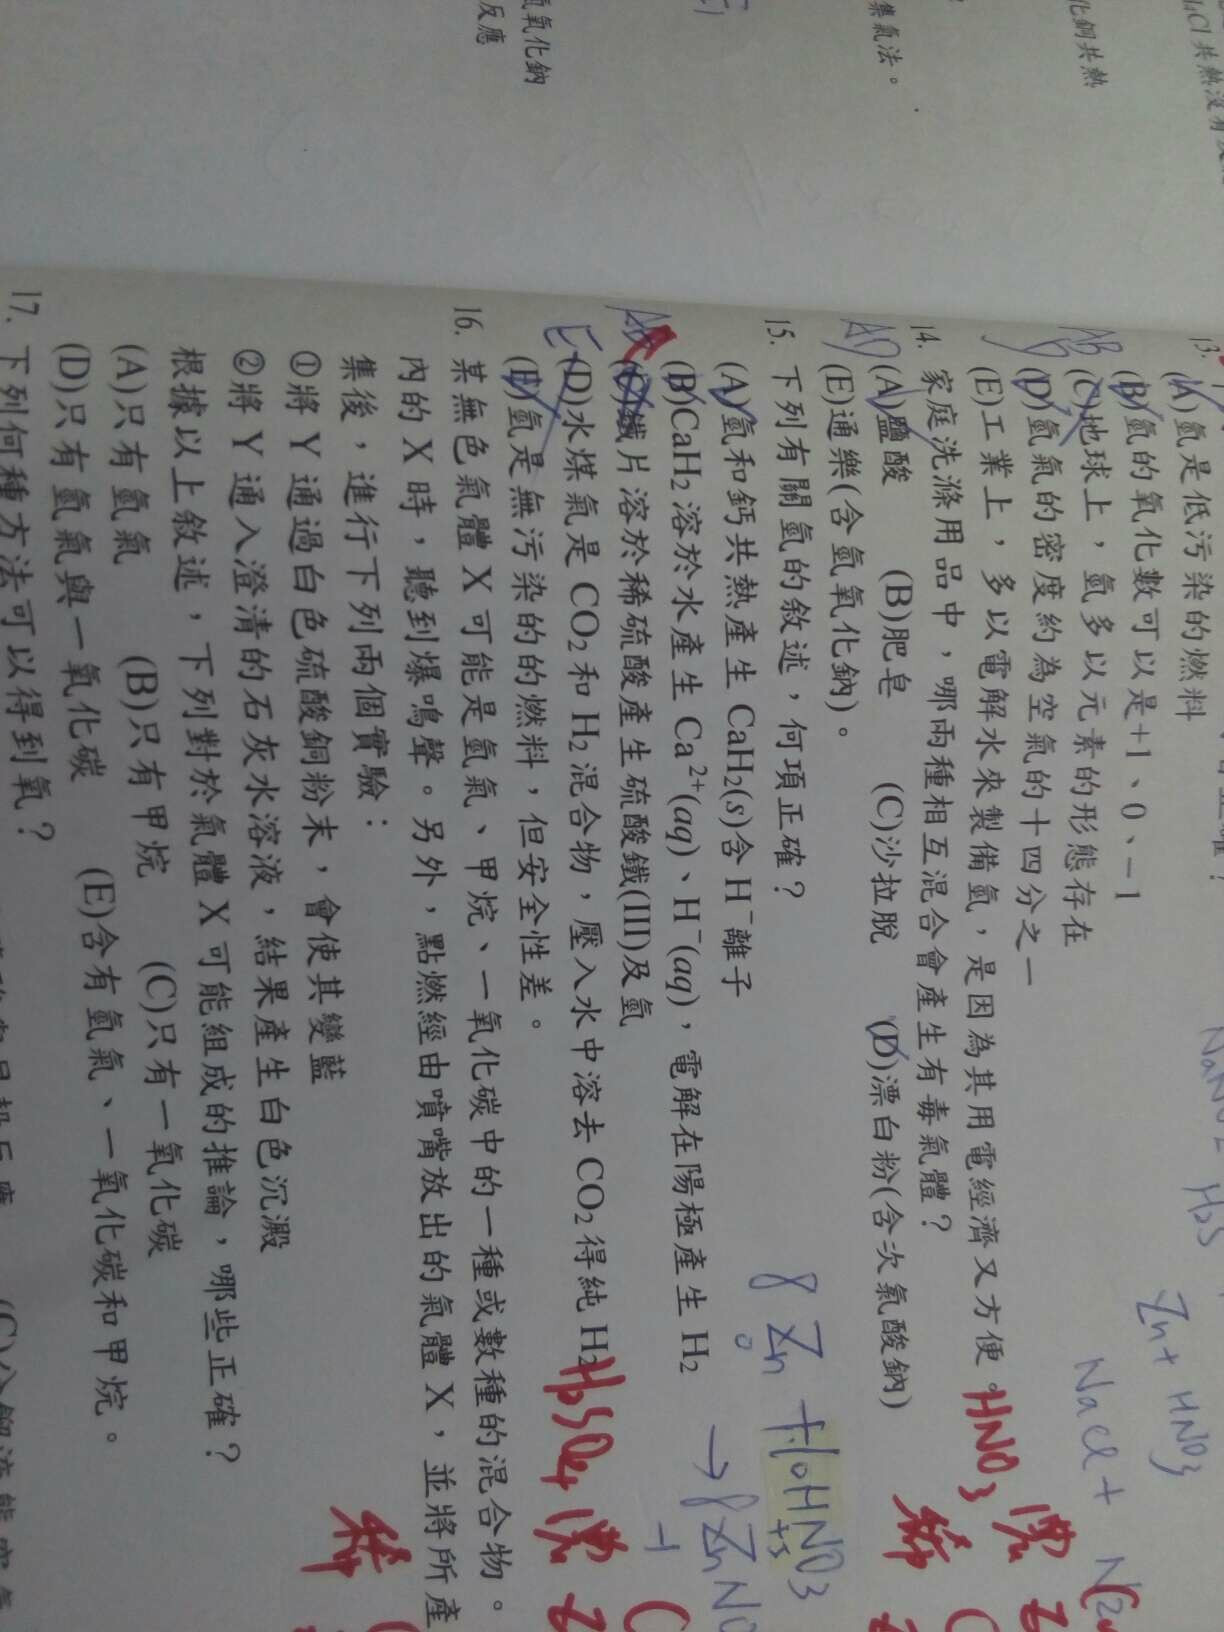 HCl共熱沒有
化銅共熱
集氣法。
氫氧化鈉
反應
13.
(A)氫是低污染的燃料
(B)氫的氧化數可以是+1、0、−1
(C)地球上，氫多以元素的形態存在
(D)氫氣的密度約為空氣的十四分之一
(E)工業上，多以電解水來製備氫，是因為其用電經濟又方便。
AB
D
14. 家庭洗滌用品中，哪兩種相互混合會產生有毒氣體？
(A)鹽酸 (B)肥皂 (C)沙拉脫 (D)漂白粉(含次氯酸鈉)
(E)通樂(含氫氧化鈉)。
AD
15. 下列有關氫的敘述，何項正確？
(A)氫和鈣共熱產生 CaH2(s)含 H−離子
(B)CaH2 溶於水產生 Ca2+(aq)、H−(aq)，電解在陽極產生 H2
(C)鐵片溶於稀硫酸產生硫酸鐵(III)及氫
(D)水煤氣是 CO2 和 H2 混合物，壓入水中溶去 CO2 得純 H2
(E)氫是無污染的的燃料，但安全性差。
AB
E
16. 某無色氣體 X 可能是氫氣、甲烷、一氧化碳中的一種或數種的混合物。
內的 X 時，聽到爆鳴聲。另外，點燃經由噴嘴放出的氣體 X，並將所產
集後，進行下列兩個實驗：
①將 Y 通過白色硫酸銅粉末，會使其變藍
②將 Y 通入澄清的石灰水溶液，結果產生白色沉澱
根據以上敘述，下列對於氣體 X 可能組成的推論，哪些正確？
(A)只有氫氣 (B)只有甲烷 (C)只有一氧化碳
(D)只有氫氣與一氧化碳 (E)含有氫氣、一氧化碳和甲烷。
17. 下列何種方法可以得到氧？
H2S
Zn + HNO3
NaCl + N
HNO3 濃
稀
8 Zn + 10HNO3
0 +5
→ 8ZnNO
-1
H2SO4 濃
稀